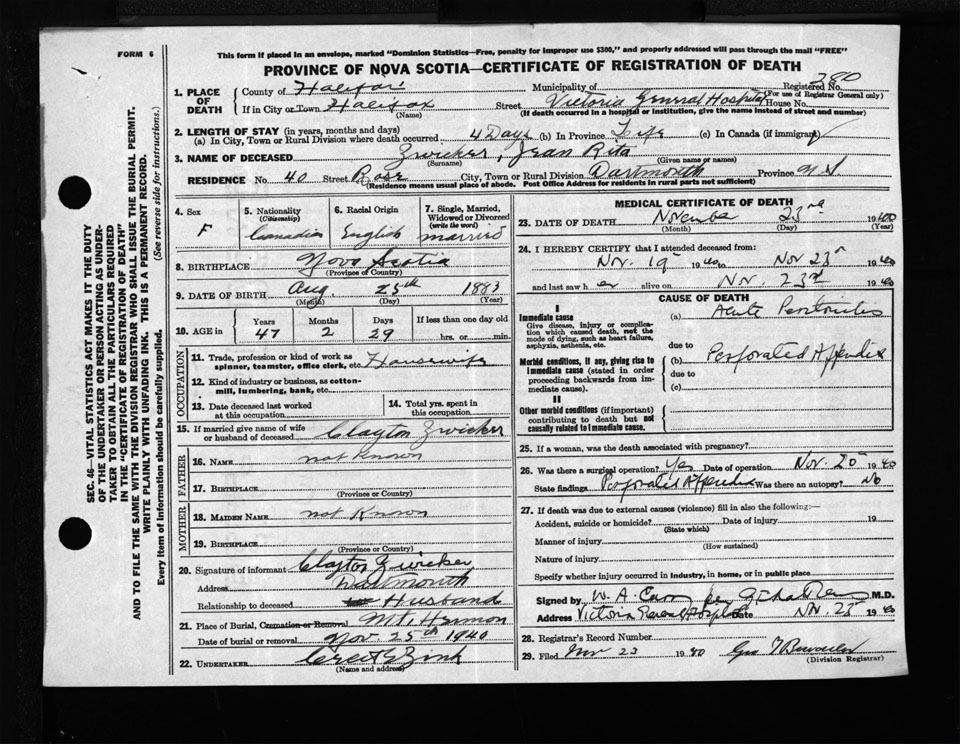 FORM 6
This form if placed in an envelope, marked "Dominion Statistics—Free, penalty for improper use $300," and properly addressed will pass through the mail "FREE"
PROVINCE OF NOVA SCOTIA—CERTIFICATE OF REGISTRATION OF DEATH
SEC. 46—VITAL STATISTICS ACT MAKES IT THE DUTY
OF THE UNDERTAKER OR PERSON ACTING AS UNDER-
TAKER TO OBTAIN ALL THE PARTICULARS REQUIRED
IN THE "CERTIFICATE OF REGISTRATION OF DEATH"
AND TO FILE THE SAME WITH THE DIVISION REGISTRAR WHO SHALL ISSUE THE BURIAL PERMIT.
WRITE PLAINLY WITH UNFADING INK. THIS IS A PERMANENT RECORD.
Every item of information should be carefully supplied. (See reverse side for instructions.)
1. PLACE OF DEATH County of Halifax Municipality of Registered No. 280
(For use of Registrar General only)
If in City or Town Halifax Street Victoria General Hospital House No.
(Name) (If death occurred in a hospital or institution, give the name instead of street and number)
2. LENGTH OF STAY (in years, months and days)
(a) In City, Town or Rural Division where death occurred 4 Days (b) In Province Life (c) In Canada (if immigrant)
3. NAME OF DECEASED Zwicker, Jean Rita
(Surname) (Given name or names)
RESIDENCE No. 40 Street Rose City, Town or Rural Division Dartmouth Province N S
(Residence means usual place of abode. Post Office Address for residents in rural parts not sufficient)
4. Sex F
5. Nationality (Citizenship) Canadian
6. Racial Origin English
7. Single, Married, Widowed or Divorced (write the word) married
8. BIRTHPLACE Nova Scotia
(Province or Country)
9. DATE OF BIRTH Aug 25th 1883
(Month) (Day) (Year)
10. AGE in Years 47 Months 2 Days 29 If less than one day old hrs. or min.
OCCUPATION
11. Trade, profession or kind of work as spinner, teamster, office clerk, etc. Housewife
12. Kind of industry or business, as cotton-mill, lumbering, bank, etc.
13. Date deceased last worked at this occupation
14. Total yrs. spent in this occupation
15. If married give name of wife or husband of deceased Clayton Zwicker
FATHER
16. NAME not Known
17. BIRTHPLACE
(Province or Country)
MOTHER
18. MAIDEN NAME not Known
19. BIRTHPLACE
(Province or Country)
20. Signature of informant Clayton Zwicker
Address Dartmouth
Relationship to deceased Husband
21. Place of Burial, Cremation or Removal Mt. Hermon
Date of burial or removal Nov 25th 1940
22. UNDERTAKER Zink
(Name and address)
MEDICAL CERTIFICATE OF DEATH
23. DATE OF DEATH November 23rd 1940
(Month) (Day) (Year)
24. I HEREBY CERTIFY that I attended deceased from:
Nov. 19 1940 to Nov 23 1940
and last saw her alive on Nov. 23rd 1940
CAUSE OF DEATH
I
Immediate cause
Give disease, injury or complication which caused death, not the mode of dying, such as heart failure, asphyxia, asthenia, etc.
(a) Acute Peritonitis
due to
Morbid conditions, if any, giving rise to immediate cause (stated in order proceeding backwards from immediate cause).
(b) Perforated Appendix
due to
(c)
II
Other morbid conditions (if important) contributing to death but not causally related to immediate cause.
25. If a woman, was the death associated with pregnancy?
26. Was there a surgical operation? Yes Date of operation Nov. 20 1940
State findings Perforated Appendix Was there an autopsy? No
27. If death was due to external causes (violence) fill in also the following:—
Accident, suicide or homicide? Date of injury 19
(State which)
Manner of injury
(How sustained)
Nature of injury
Specify whether injury occurred in industry, in home, or in public place
Signed by W. A. M.D.
Address Victoria General Hospital Date Nov. 23 1940
28. Registrar's Record Number
29. Filed Nov 23 1940
(Division Registrar)